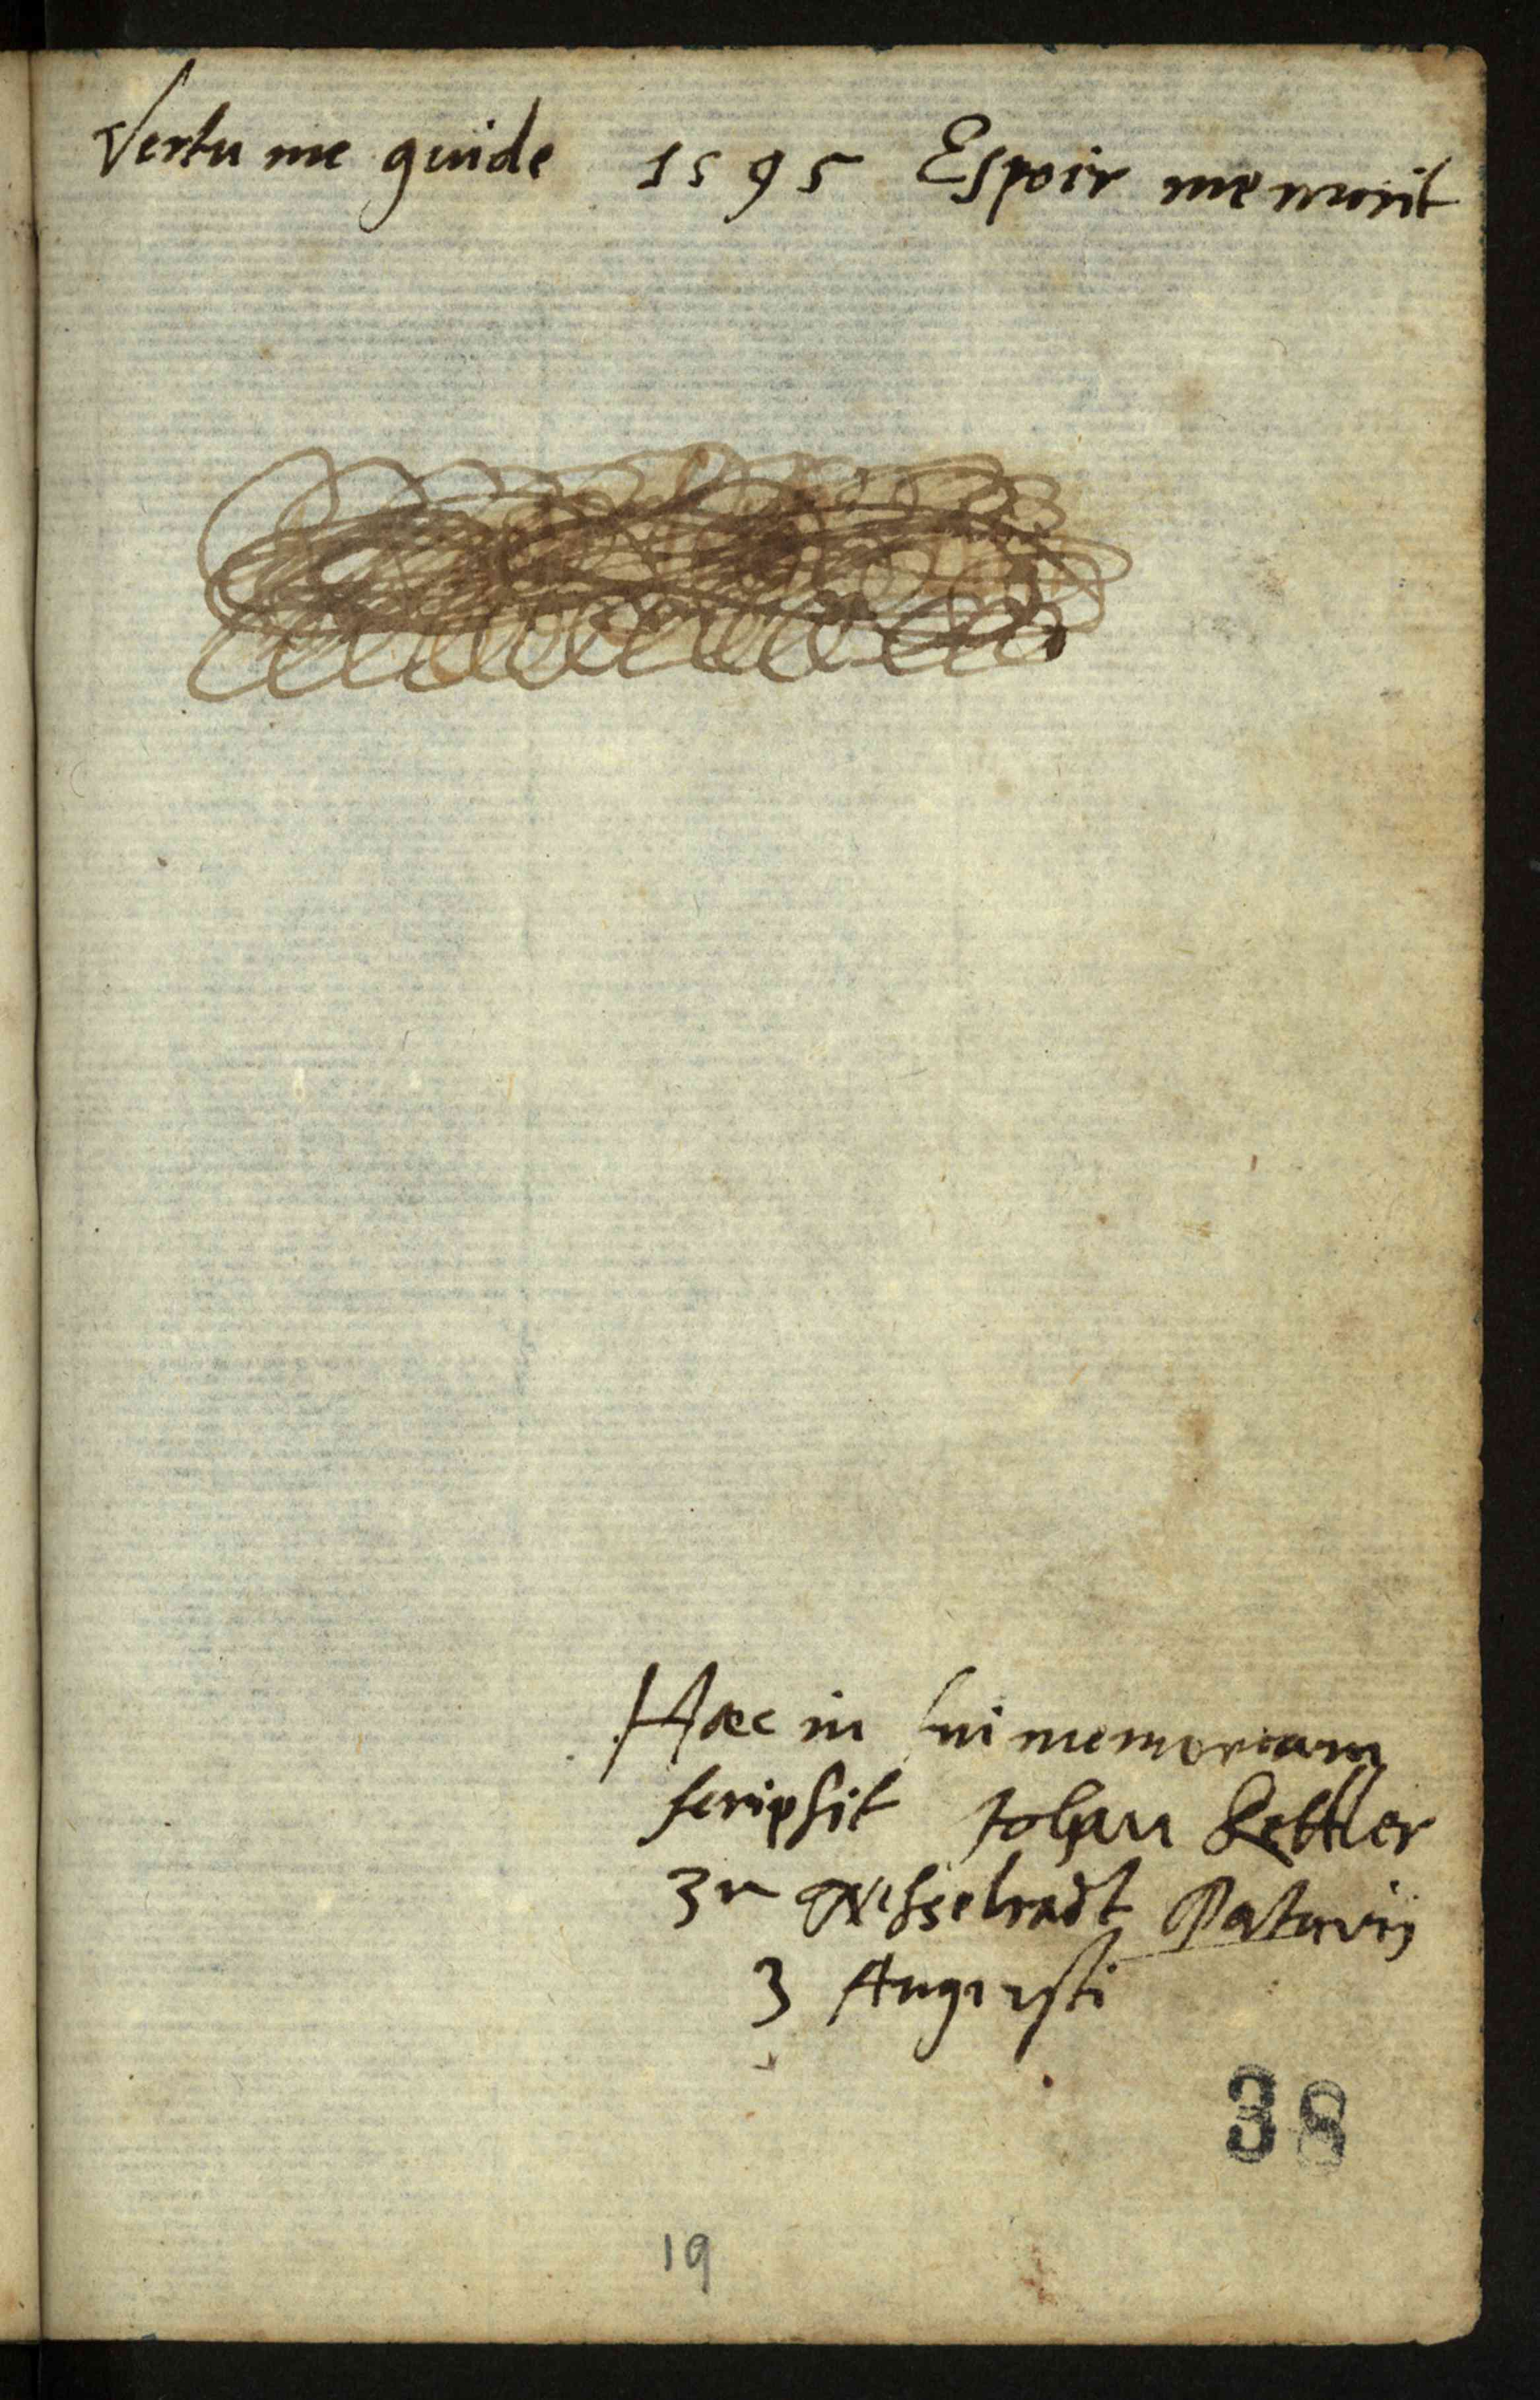 Vertu me guide 1595 Espoir me nurit
Haec in sui memoriam
scripsit Johan Kettler
Zu Nesselradt Patavij
3 Augusti
38
19